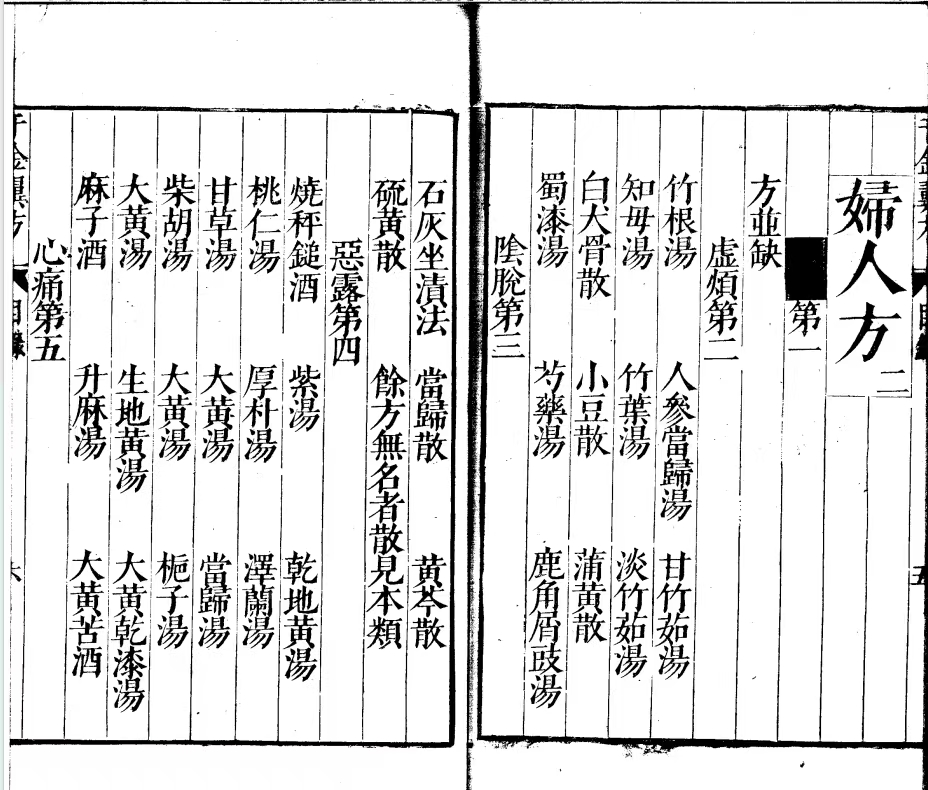 婦人方二
第一
方並缺
虛煩第二
竹根湯 人參當歸湯 甘竹茹湯
知母湯 竹葉湯 淡竹茹湯
白犬骨散 小豆散 蒲黃散
蜀漆湯 芍藥湯 鹿角屑豉湯
陰脫第三
石灰坐漬法 當歸散 黃芩散
硫黃散 餘方無名者散見本類
惡露第四
燒秤鎚酒 紫湯 乾地黃湯
桃仁湯 厚朴湯 澤蘭湯
甘草湯 大黃湯 當歸湯
柴胡湯 大黃湯 梔子湯
大黃湯 生地黃湯 大黃乾漆湯
麻子酒 升麻湯 大黃苦酒
心痛第五
千金翼方 目錄